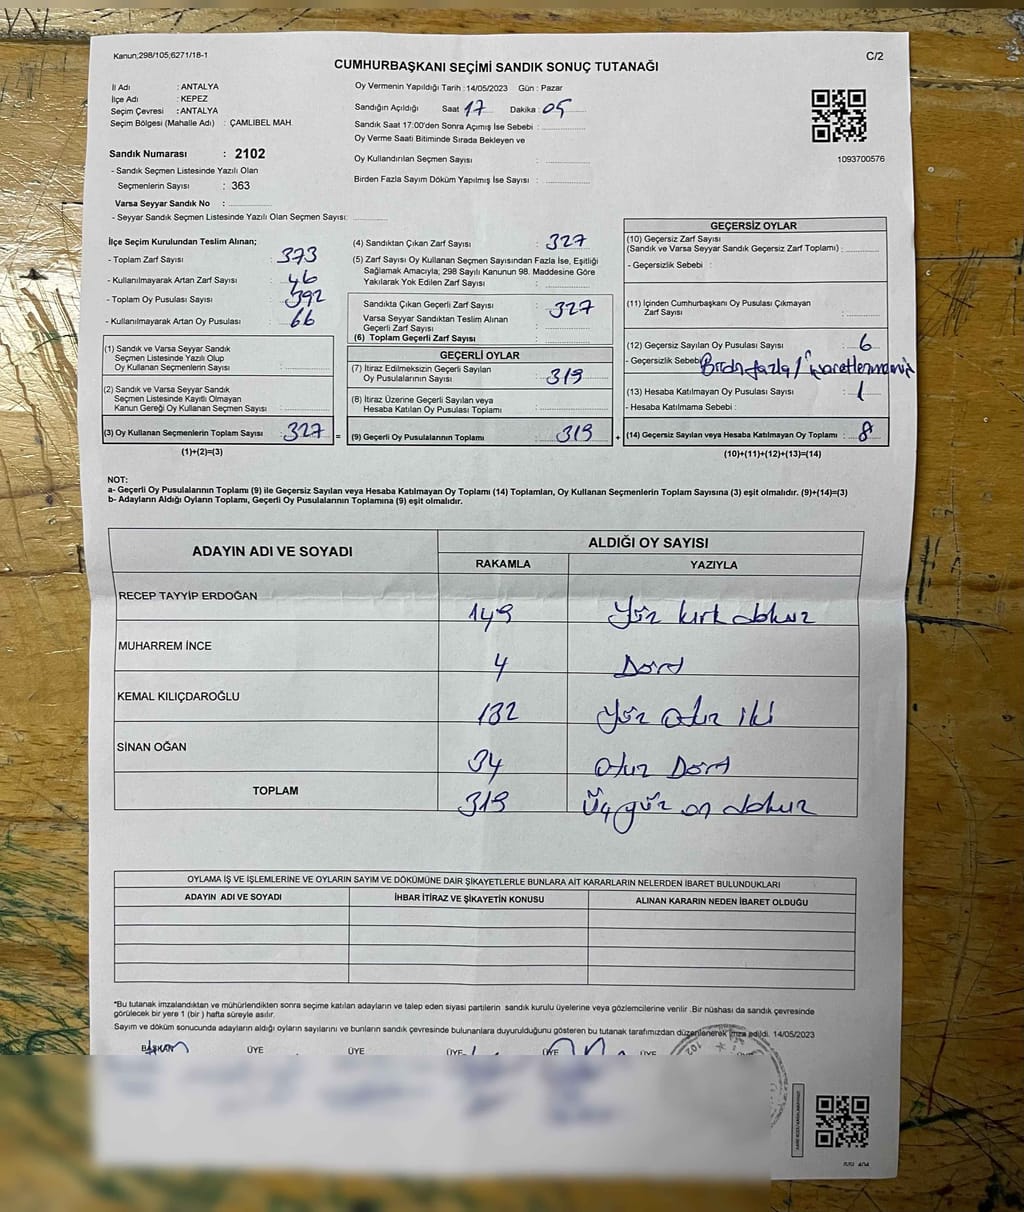 Kanun;298/105;6271/18-1
C/2
CUMHURBAŞKANI SEÇİMİ SANDIK SONUÇ TUTANAĞI
İl Adı : ANTALYA
İlçe Adı : KEPEZ
Seçim Çevresi : ANTALYA
Seçim Bölgesi (Mahalle Adı) : ÇAMLIBEL MAH.
Sandık Numarası : 2102
- Sandık Seçmen Listesinde Yazılı Olan
Seçmenlerin Sayısı : 363
Varsa Seyyar Sandık No :
- Seyyar Sandık Seçmen Listesinde Yazılı Olan Seçmen Sayısı:
Oy Vermenin Yapıldığı Tarih : 14/05/2023 Gün : Pazar
Sandığın Açıldığı Saat 17 Dakika : 05
Sandık Saat 17:00'den Sonra Açımış İse Sebebi :
Oy Verme Saati Bitiminde Sırada Bekleyen ve
Oy Kullandırılan Seçmen Sayısı :
Birden Fazla Sayım Döküm Yapılmış İse Sayısı :
1093700576
İlçe Seçim Kurulundan Teslim Alınan;
- Toplam Zarf Sayısı : 373
- Kullanılmayarak Artan Zarf Sayısı : 46
- Toplam Oy Pusulası Sayısı : 392
- Kullanılmayarak Artan Oy Pusulası : 66
(1) Sandık ve Varsa Seyyar Sandık
Seçmen Listesinde Yazılı Olup
Oy Kullanan Seçmenlerin Sayısı :
(2) Sandık ve Varsa Seyyar Sandık
Seçmen Listesinde Kayıtlı Olmayan
Kanun Gereği Oy Kullanan Seçmen Sayısı :
(3) Oy Kullanan Seçmenlerin Toplam Sayısı : 327 =
(1)+(2)=(3)
(4) Sandıktan Çıkan Zarf Sayısı : 327
(5) Zarf Sayısı Oy Kullanan Seçmen Sayısından Fazla İse, Eşitliği
Sağlamak Amacıyla; 298 Sayılı Kanunun 98. Maddesine Göre
Yakılarak Yok Edilen Zarf Sayısı :
Sandıkta Çıkan Geçerli Zarf Sayısı : 327
Varsa Seyyar Sandıktan Teslim Alınan
Geçerli Zarf Sayısı :
(6) Toplam Geçerli Zarf Sayısı :
GEÇERLİ OYLAR
(7) İtiraz Edilmeksizin Geçerli Sayılan
Oy Pusulalarının Sayısı : 319
(8) İtiraz Üzerine Geçerli Sayılan veya
Hesaba Katılan Oy Pusulası Toplamı :
(9) Geçerli Oy Pusulalarının Toplamı : 319 +
GEÇERSİZ OYLAR
(10) Geçersiz Zarf Sayısı
(Sandık ve Varsa Seyyar Sandık Geçersiz Zarf Toplamı) :
- Geçersizlik Sebebi :
(11) İçinden Cumhurbaşkanı Oy Pusulası Çıkmayan
Zarf Sayısı :
(12) Geçersiz Sayılan Oy Pusulası Sayısı : 6
- Geçersizlik Sebebi Birden fazla
(13) Hesaba Katılmayan Oy Pusulası Sayısı : 1
- Hesaba Katılmama Sebebi :
(14) Geçersiz Sayılan veya Hesaba Katılmayan Oy Toplamı : 8
(10)+(11)+(12)+(13)=(14)
NOT:
a- Geçerli Oy Pusulalarının Toplamı (9) ile Geçersiz Sayılan veya Hesaba Katılmayan Oy Toplamı (14) Toplamları, Oy Kullanan Seçmenlerin Toplam Sayısına (3) eşit olmalıdır. (9)+(14)=(3)
b- Adayların Aldığı Oyların Toplamı, Geçerli Oy Pusulalarının Toplamına (9) eşit olmalıdır.
ADAYIN ADI VE SOYADI ALDIĞI OY SAYISI
RAKAMLA YAZIYLA
RECEP TAYYİP ERDOĞAN 149 Yüz kırk dokuz
MUHARREM İNCE 4 Dört
KEMAL KILIÇDAROĞLU 132 Yüz otuz iki
SİNAN OĞAN 34 otuz Dört
TOPLAM 319 Üç yüz on dokuz
OYLAMA İŞ VE İŞLEMLERİNE VE OYLARIN SAYIM VE DÖKÜMÜNE DAİR ŞİKAYETLERLE BUNLARA AİT KARARLARIN NELERDEN İBARET BULUNDUKLARI
ADAYIN ADI VE SOYADI İHBAR İTİRAZ VE ŞİKAYETİN KONUSU ALINAN KARARIN NEDEN İBARET OLDUĞU
*Bu tutanak imzalandıktan ve mühürlendikten sonra seçime katılan adayların ve talep eden siyasi partilerin sandık kurulu üyelerine veya gözlemcilerine verilir .Bir nüshası da sandık çevresinde
görülecek bir yere 1 (bir ) hafta süreyle asılır.
Sayım ve döküm sonucunda adayların aldığı oyların sayılarını ve bunların sandık çevresinde bulunanlara duyurulduğunu gösteren bu tutanak tarafımızdan düzenlenerek imza edildi. 14/05/2023
BAŞKAN ÜYE ÜYE ÜYE ÜYE ÜYE